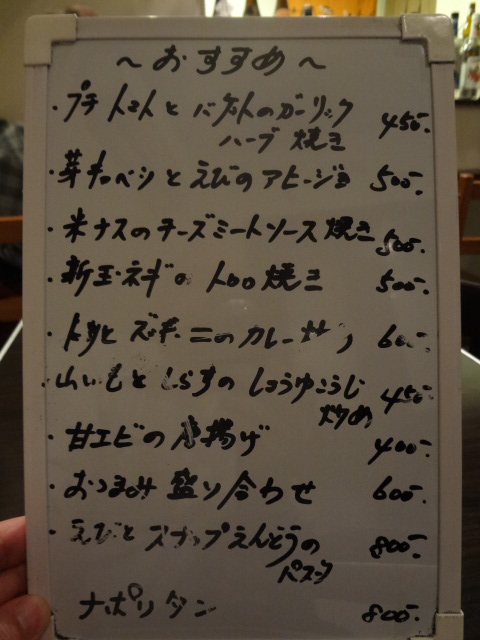 ～おすすめ～
・プチトマトとバケットのガーリック
ハーブ焼き 450-
・芽キャベツとえびのアヒージョ 500-
・米ナスのチーズミートソース焼き 500-
・新玉ネギの トロロ焼き 500-
・ とズッキーニのカレー 60
・山いもとしらすのしょうゆこうじ
炒め 450-
・甘エビの唐揚げ 400-
・おつまみ盛り合わせ 600-
・えびとスナップえんどうの
パスタ 800-
ナポリタン 800-